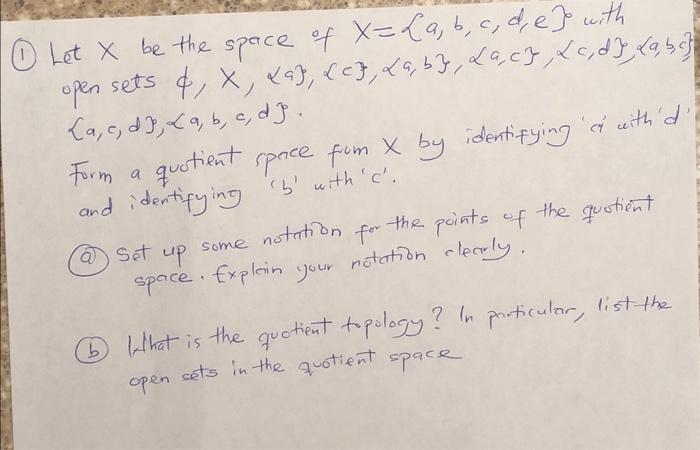 ① Let X be the space of X = {a, b, c, d, e} with
open sets ϕ, X, {a}, {c}, {a, b}, {a, c}, {c, d}, {a, b, c}
{a, c, d}, {a, b, c, d}.
Form a quotient space from X by identifying 'a' with 'd'
and identifying 'b' with 'c'.
ⓐ Set up some notation for the points of the quotient
space. Explain your notation clearly.
ⓑ What is the quotient topology? In particular, list the
open sets in the quotient space